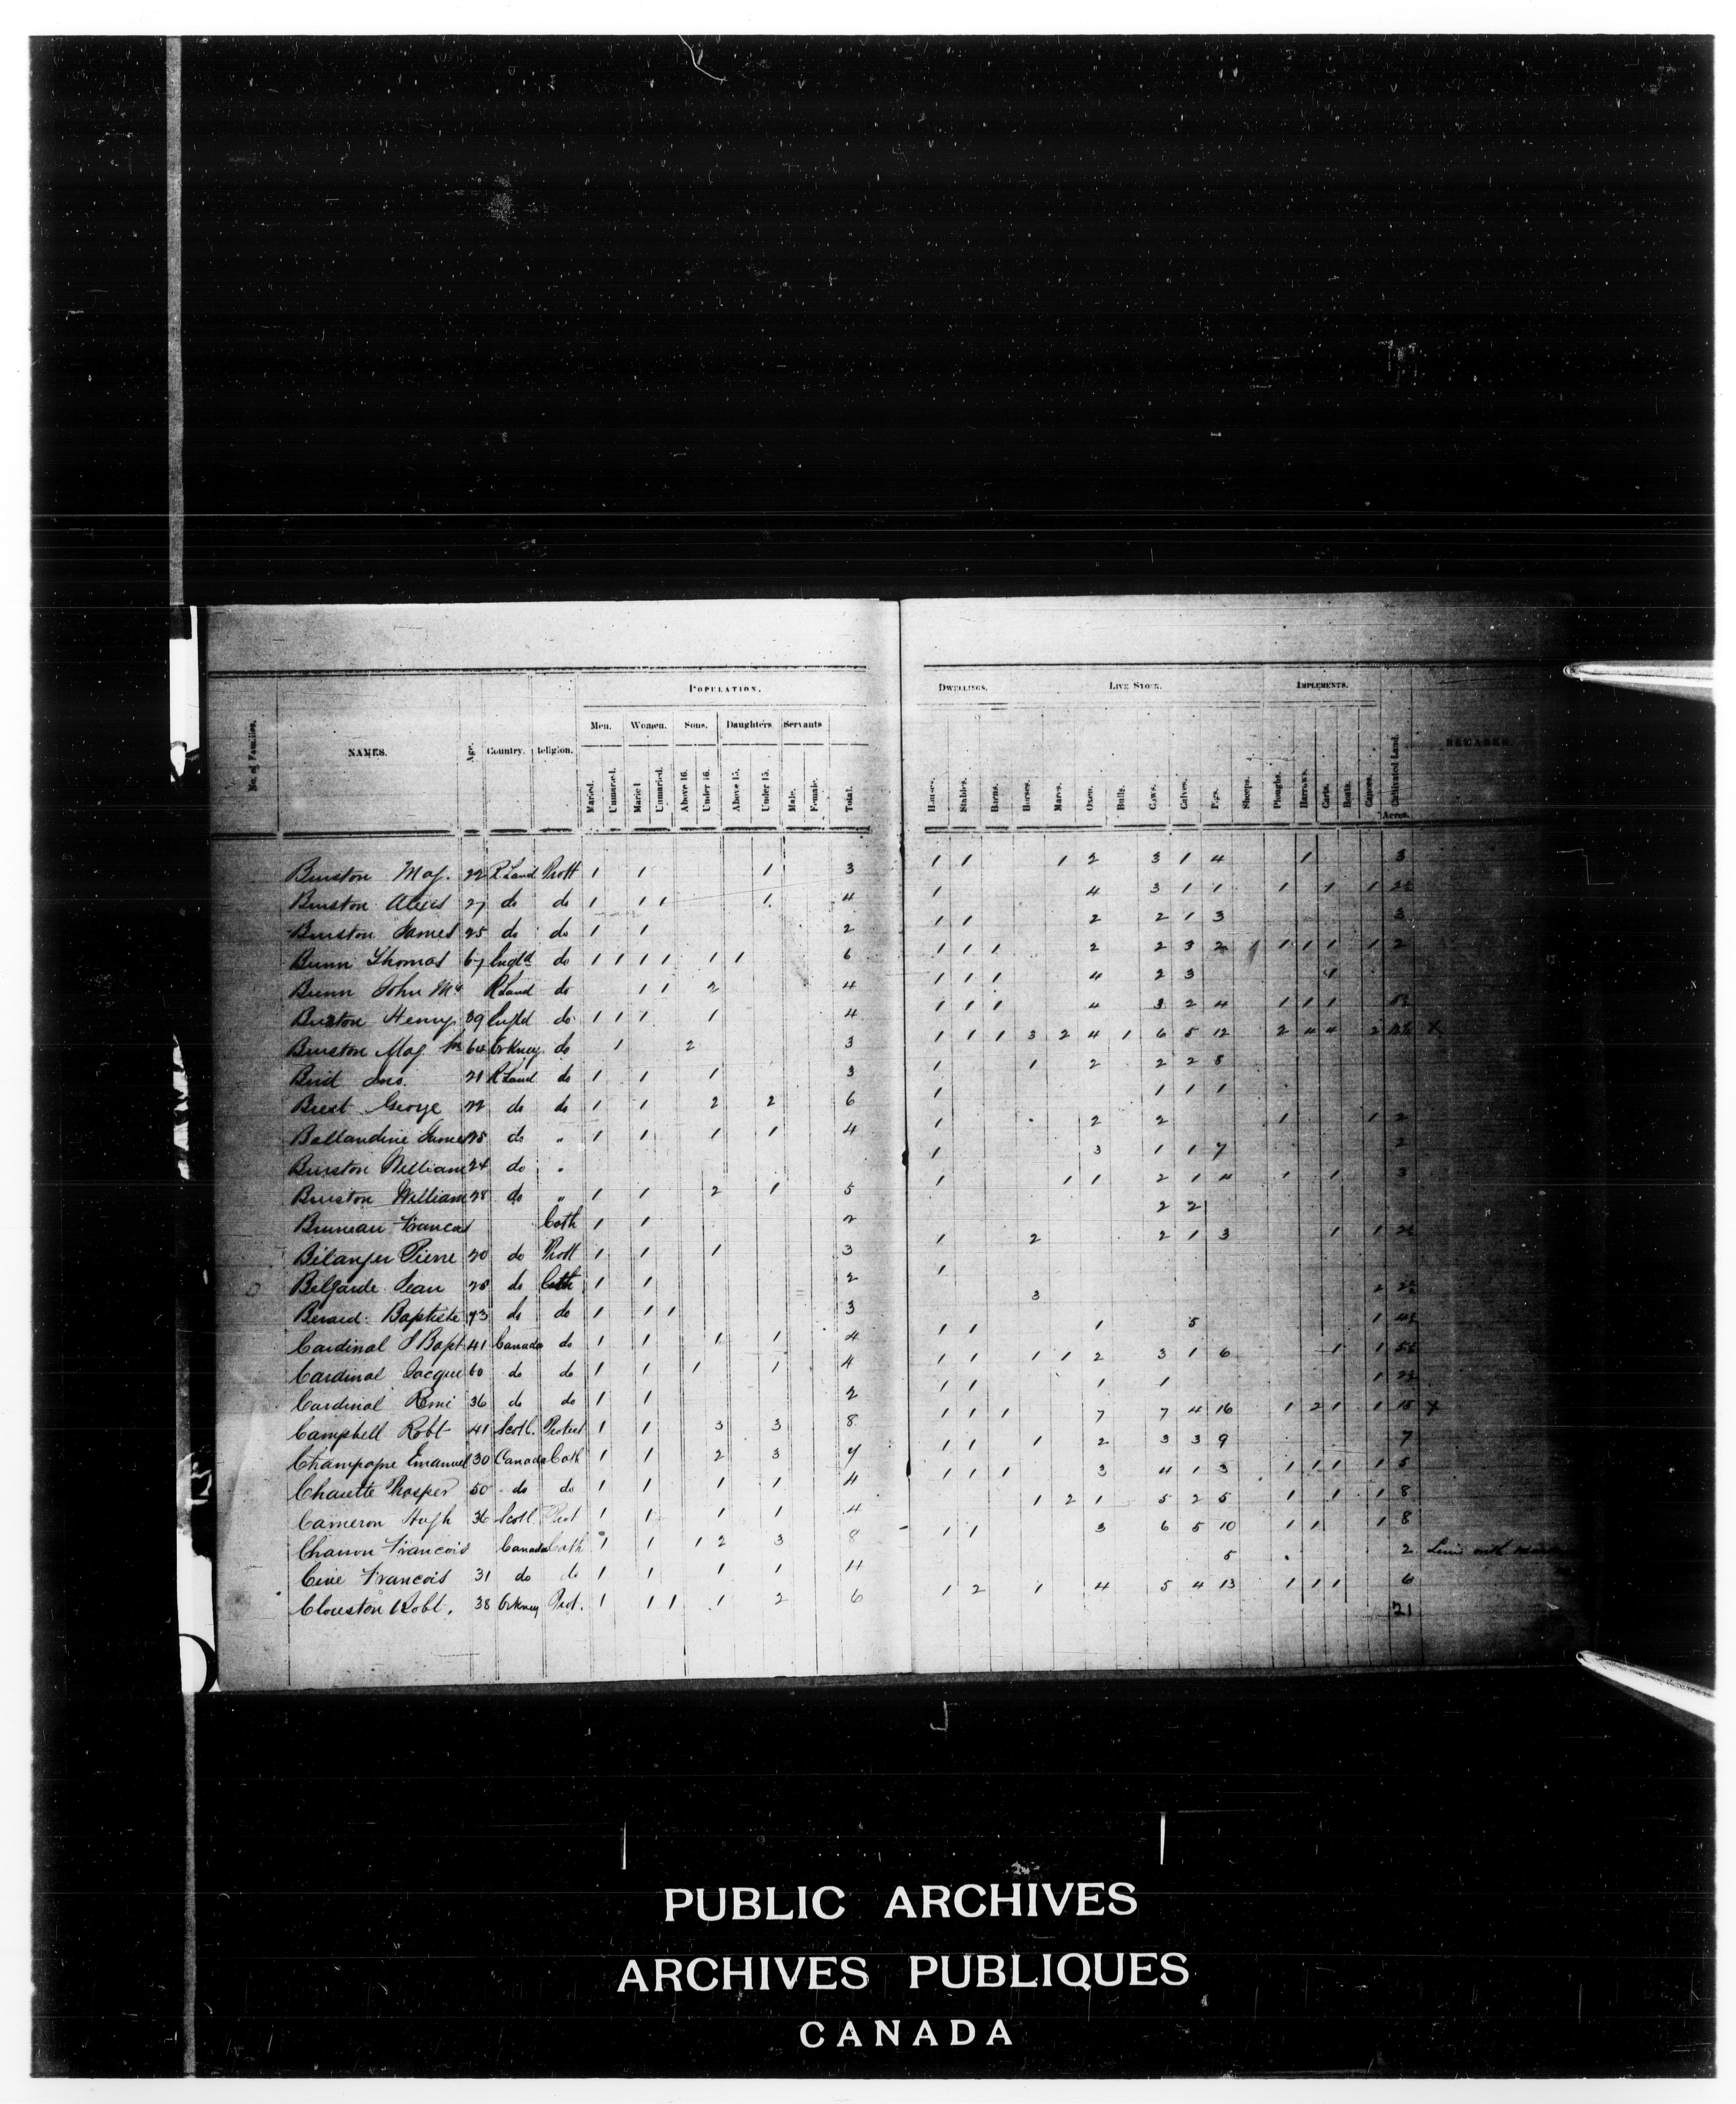 POPULATION.
DWELLINGS. LIVE STOCK. IMPLEMENTS.
Men. Women. Sons. Daughters Servants
No. of Families. NAMES. Age. Country. Religion. Maried. Unmaried. Maried Unmaried. Above 16. Under 16. Above 15. Under 15. Male. Female. Total. Houses. Stables. Barns. Horses. Mares. Oxen. Bulls. Cows. Calves. Pigs. Sheeps. Ploughs. Harrows. Carts. Boats. Canoes. Cultivated Land. REMARKS.
Acres.
Burston Mag. 22 R Land Prott 1 1 1 3 1 1 1 2 3 1 4 1 3
Burston Alexis 27 do do 1 1 1 1 4 1 4 3 1 1 1 1 1
Burston James 25 do do 1 1 2 1 1 2 2 1 3 3
Bunn Thomas 67 Engld do 1 1 1 1 1 1 6 1 1 1 2 2 3 2 1 1 1 1 1 2
Bunn John R Land do 1 1 2 4 1 1 1 4 2 3 1
Buxton Henry 39 Engld do 1 1 1 1 4 1 1 1 4 3 2 4 1 1 1
Burston Mag 64 Orkney do 1 2 3 1 1 1 3 2 4 1 6 5 12 2 4 4 2 X
Bird Jno. 21 R Land do 1 1 1 3 1 1 2 2 2 8
Brest George 22 do do 1 1 2 2 6 1 1 1 1
Ballandine James 28 do " 1 1 1 1 4 1 2 2 1 1 2
Burston William 24 do " 1 3 1 1 7 2
Burston William 28 do " 1 1 2 1 5 1 1 1 2 1 4 1 1 3
Bruneau Francas Cath 1 1 2 2 2
Bélanger Pierre 20 do Prott 1 1 1 3 1 2 2 1 3 1 1
Belgarde Jean 28 do Cath 1 1 2 1
Berard Baptiste 43 do do 1 1 1 3 3 2
Cardinal J Bapt 41 Canada do 1 1 1 1 4 1 1 1 5 1
Cardinal Jacque 60 do do 1 1 1 1 4 1 1 1 1 2 3 1 6 1 1
Cardinal Remi 36 do do 1 1 2 1 1 1 1 1
Campbell Robt 41 Scotl. Protest 1 1 3 3 8 1 1 1 7 7 4 16 1 2 1 1 15 X
Champagne Emanuel 30 Canada Cath 1 1 2 3 7 1 1 1 2 3 3 9 7
Charette Prosper 50 do do 1 1 1 1 4 1 1 1 3 4 1 3 1 1 1 1 5
Cameron Hugh 36 Scotl. Prot 1 1 1 1 4 1 2 1 5 2 5 1 1 1 8
Charron Francois Canada Cath 1 1 1 2 3 8 1 1 3 6 5 10 1 1 1 8
Cire Francois 31 do do 1 1 1 1 4 5 2
Clouston Robt. 38 Orkney Prot. 1 1 1 1 2 6 1 2 1 4 5 4 13 1 1 1 6
21
PUBLIC ARCHIVES
ARCHIVES PUBLIQUES
CANADA